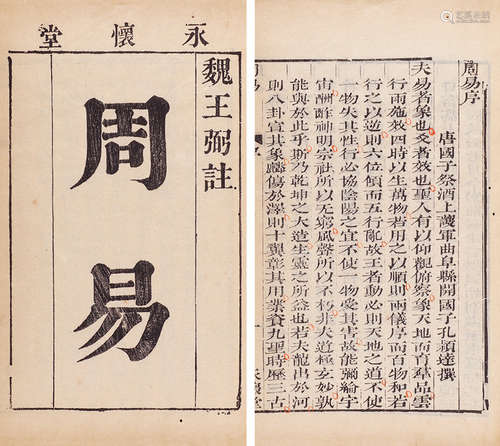 永懷堂
魏王弼註
周易
周易序
唐國子祭酒上護軍曲阜縣開國子孔穎達撰
夫易者象也爻者效也聖人有以仰觀俯察象天地而育羣品雲
行雨施效四時以生萬物若用之以順則兩儀序而百物和若
行之以逆則六位傾而五行亂故王者動必則天地之道不使
一物失其性行必協陰陽之宜不使一物受其害故能彌綸宇
宙酬酢神明宗社所以无窮風聲所以不朽非夫道極玄妙孰
能與於此乎斯乃乾坤之大造生靈之所益也若夫龍出於河
則八卦宣其象麟傷於澤則十翼彰其用業資九聖時歷三古